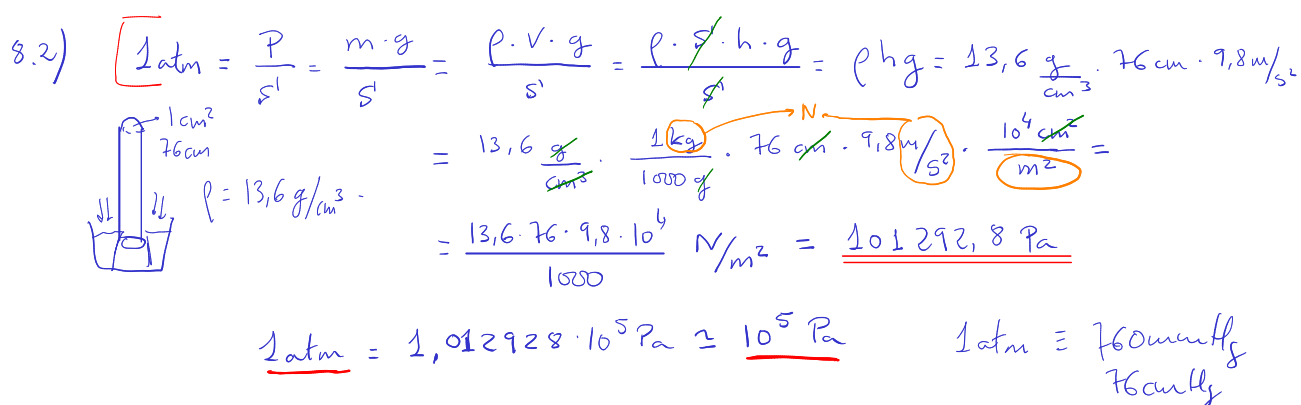 8.2) 1 atm = P/S = m·g/S = ρ·V·g/S = ρ·S·h·g/S = ρhg = 13,6 g/cm³ · 76 cm · 9,8 m/s²
1 cm²
76 cm
ρ = 13,6 g/cm³
N
= 13,6 g/cm³ · 1 kg/1000 g · 76 cm · 9,8 m/s² · 10⁴ cm²/m² =
= 13,6·76·9,8·10⁴/1000 N/m² = 101292,8 Pa
1 atm = 1,012928·10⁵ Pa ≃ 10⁵ Pa
1 atm ≡ 760 mmHg
76 cmHg